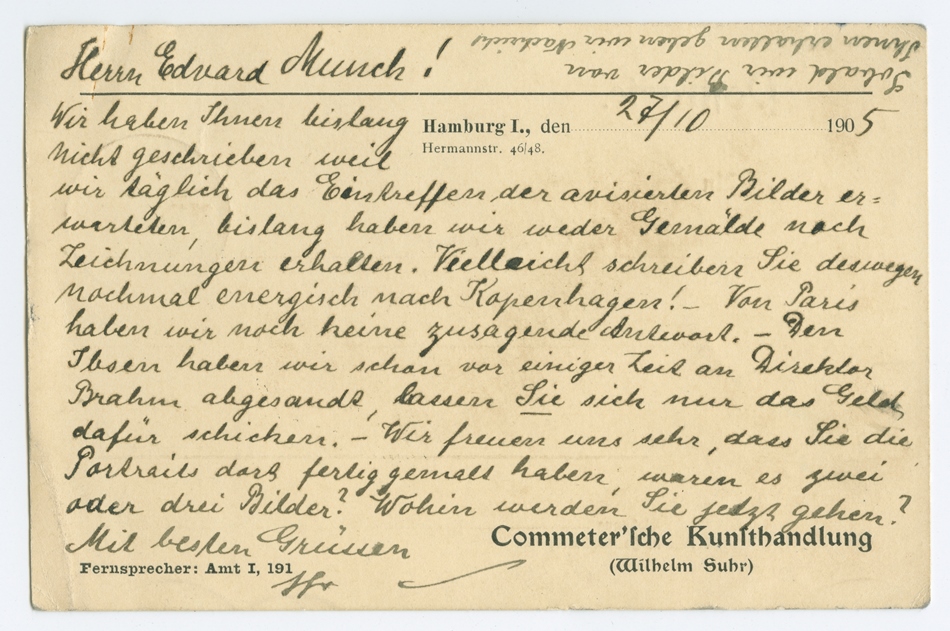 Herrn Edvard Munch!
Hamburg I., den 27/10 1905
Hermannstr. 46/48.
Wir haben Ihnen bislang
nicht geschrieben weil
wir täglich das Eintreffen der avisierten Bilder er=
warteten, bislang haben wir weder Gemälde noch
Zeichnungen erhalten. Vielleicht schreiben Sie deswegen
nochmal energisch nach Kopenhagen! – Von Paris
haben wir noch keine zusagende Antwort. – Den
Ibsen haben wir schon vor einiger Zeit an Direktor
Brahm abgesandt, lassen Sie sich nur das Geld
dafür schicken. – Wir freuen uns sehr, dass Sie die
Portraits dort fertig gemalt haben, waren es zwei
oder drei Bilder? Wohin werden Sie jetzt gehen?
Mit besten Grüssen
Commeter'sche Kunsthandlung
(Wilhelm Suhr)
Fernsprecher: Amt I, 191
Sobald wir Bilder von
Ihnen erhalten geben wir Nachricht